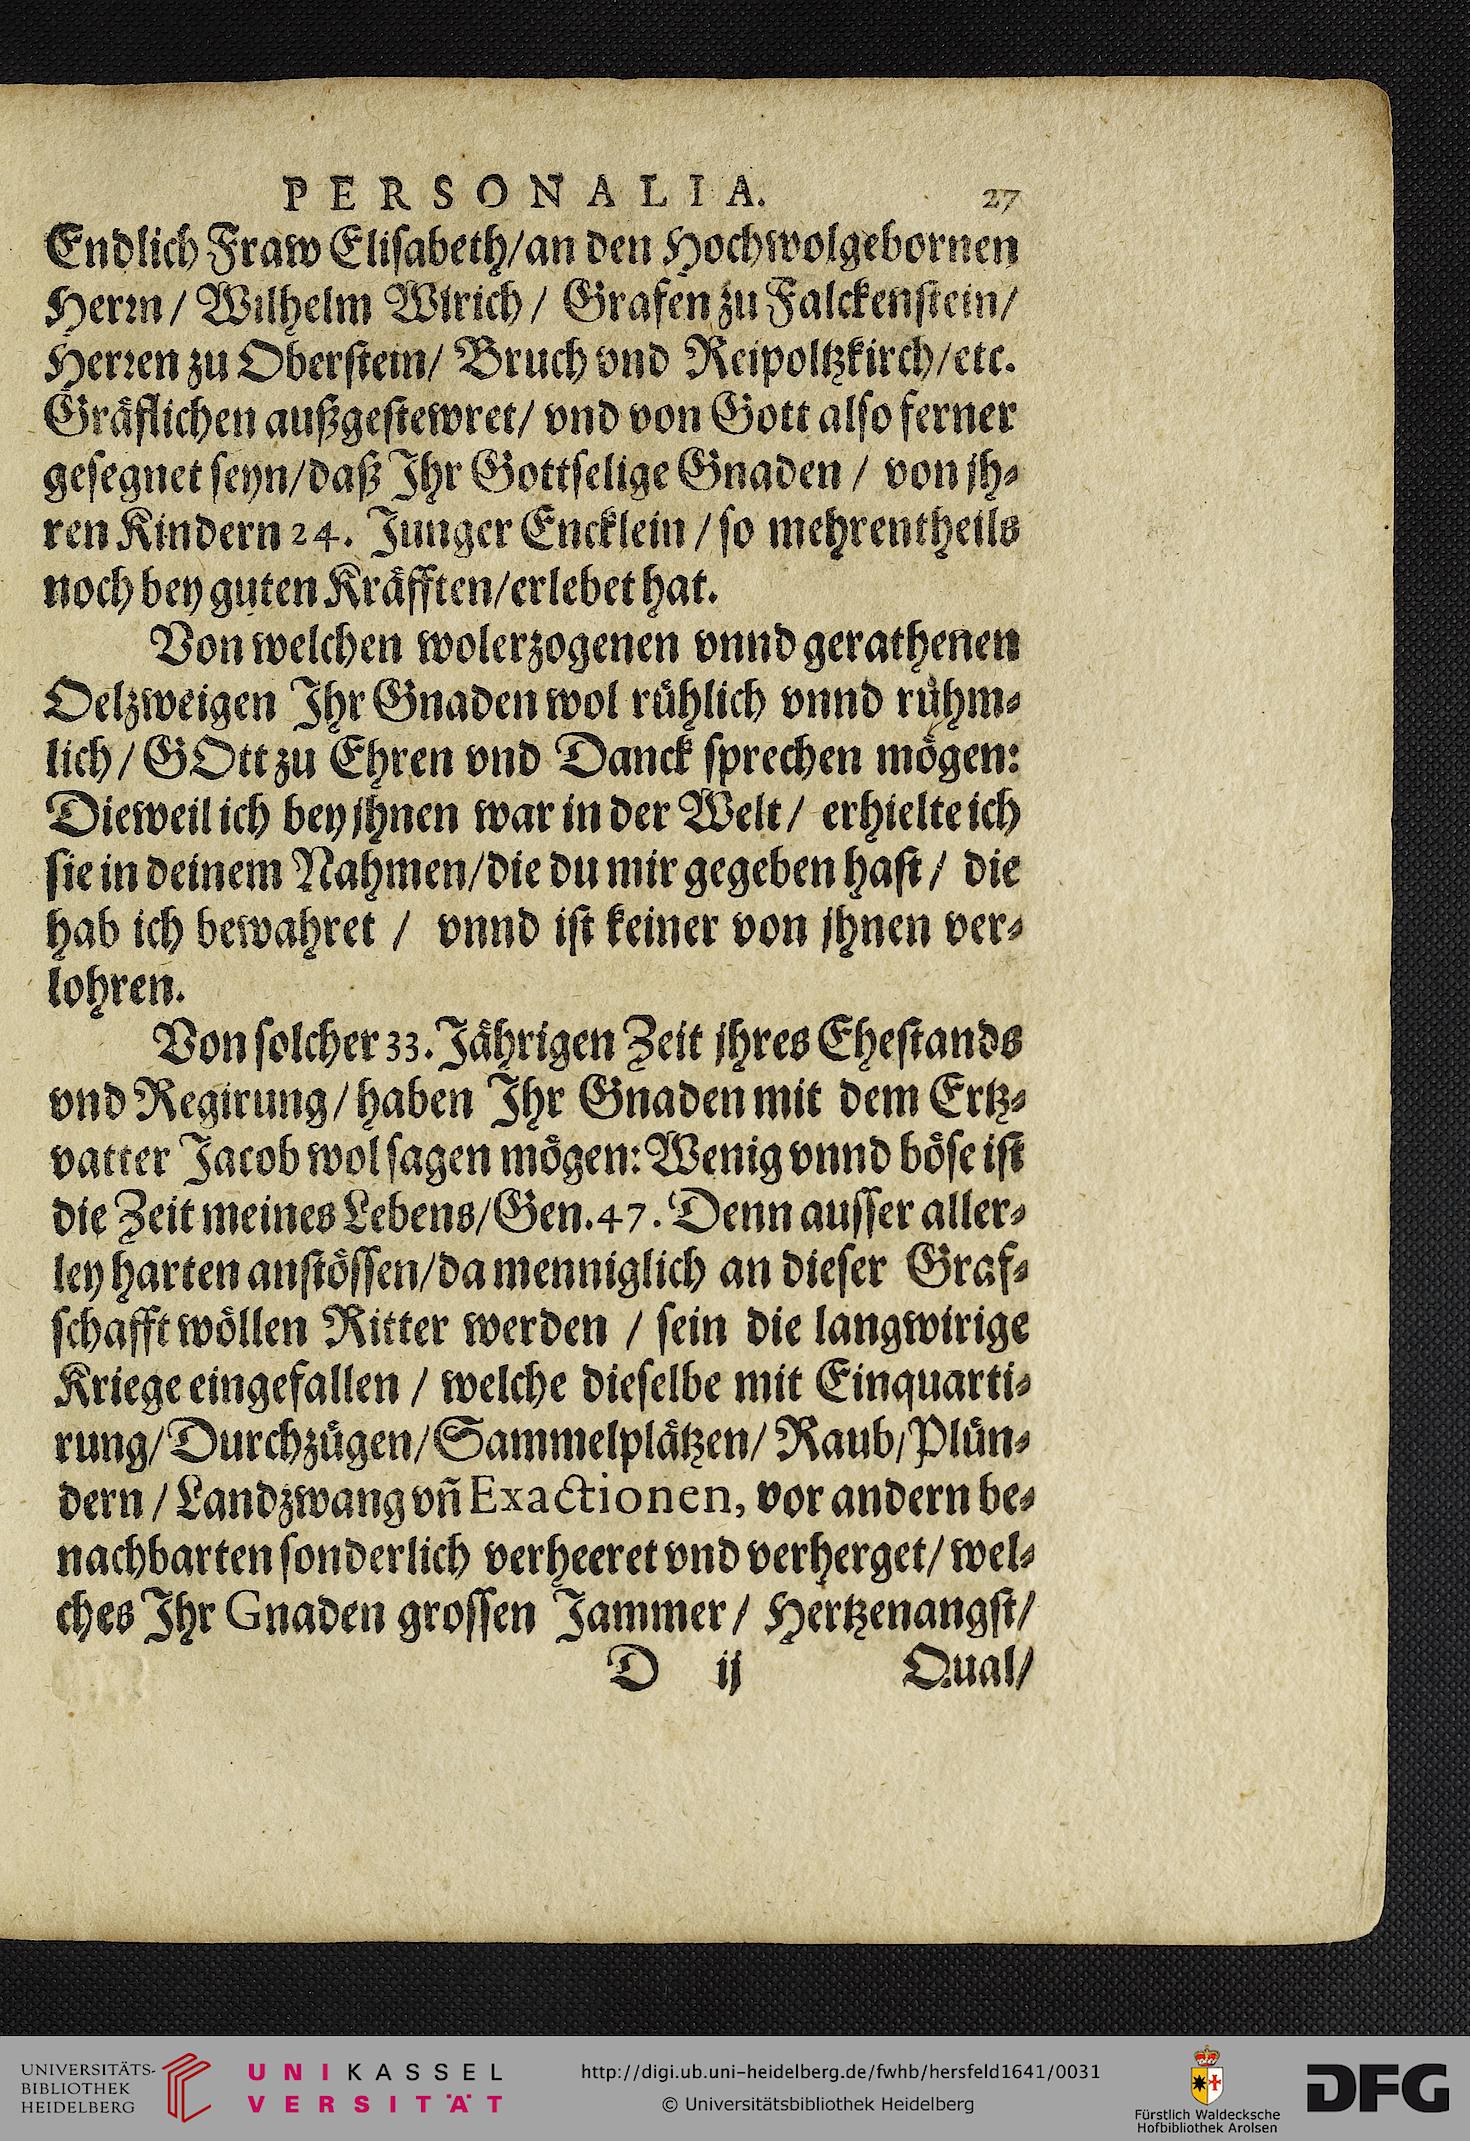 PERSONALIA. 27
Endlich Fraw Elisabeth/an den Hochwolgebornen
Herrn / Wilhelm Wlrich / Grafen zu Falckenstein/
Herren zu Oberstein/ Bruch vnd Reipoltzkirch/etc.
Gräflichen außgestewret/ vnd von Gott also ferner
gesegnet seyn/daß Ihr Gottselige Gnaden / von jh-
ren Kindern 24. Junger Encklein / so mehrentheils
noch bey guten Kräfften/erlebet hat.
Von welchen wolerzogenen vnnd gerathenen
Oelzweigen Ihr Gnaden wol rühlich vnnd rühm-
lich / GOtt zu Ehren vnd Danck sprechen mögen:
Dieweil ich bey jhnen war in der Welt / erhielte ich
sie in deinem Nahmen/die du mir gegeben hast / die
hab ich bewahret / vnnd ist keiner von jhnen ver-
lohren.
Von solcher 33. Jährigen Zeit jhres Ehestands
vnd Regirung / haben Ihr Gnaden mit dem Ertz-
vatter Jacob wol sagen mögen: Wenig vnnd böse ist
die Zeit meines Lebens/Gen.47. Denn ausser aller-
ley harten anstössen/da menniglich an dieser Graf-
schafft wöllen Ritter werden / sein die langwirige
Kriege eingefallen / welche dieselbe mit Einquarti-
rung/Durchzügen/Sammelplätzen/ Raub/Plün-
dern / Landzwang vñ Exactionen, vor andern be-
nachbarten sonderlich verheeret vnd verherget/ wel-
ches Ihr Gnaden grossen Jammer / Hertzenangst/
D ij Qual/
UNIVERSITÄTS-
BIBLIOTHEK
HEIDELBERG
UNIKASSEL
VERSITÄT
http://digi.ub.uni-heidelberg.de/fwhb/hersfeld1641/0031
© Universitätsbibliothek Heidelberg
Fürstlich Waldecksche
Hofbibliothek Arolsen
DFG